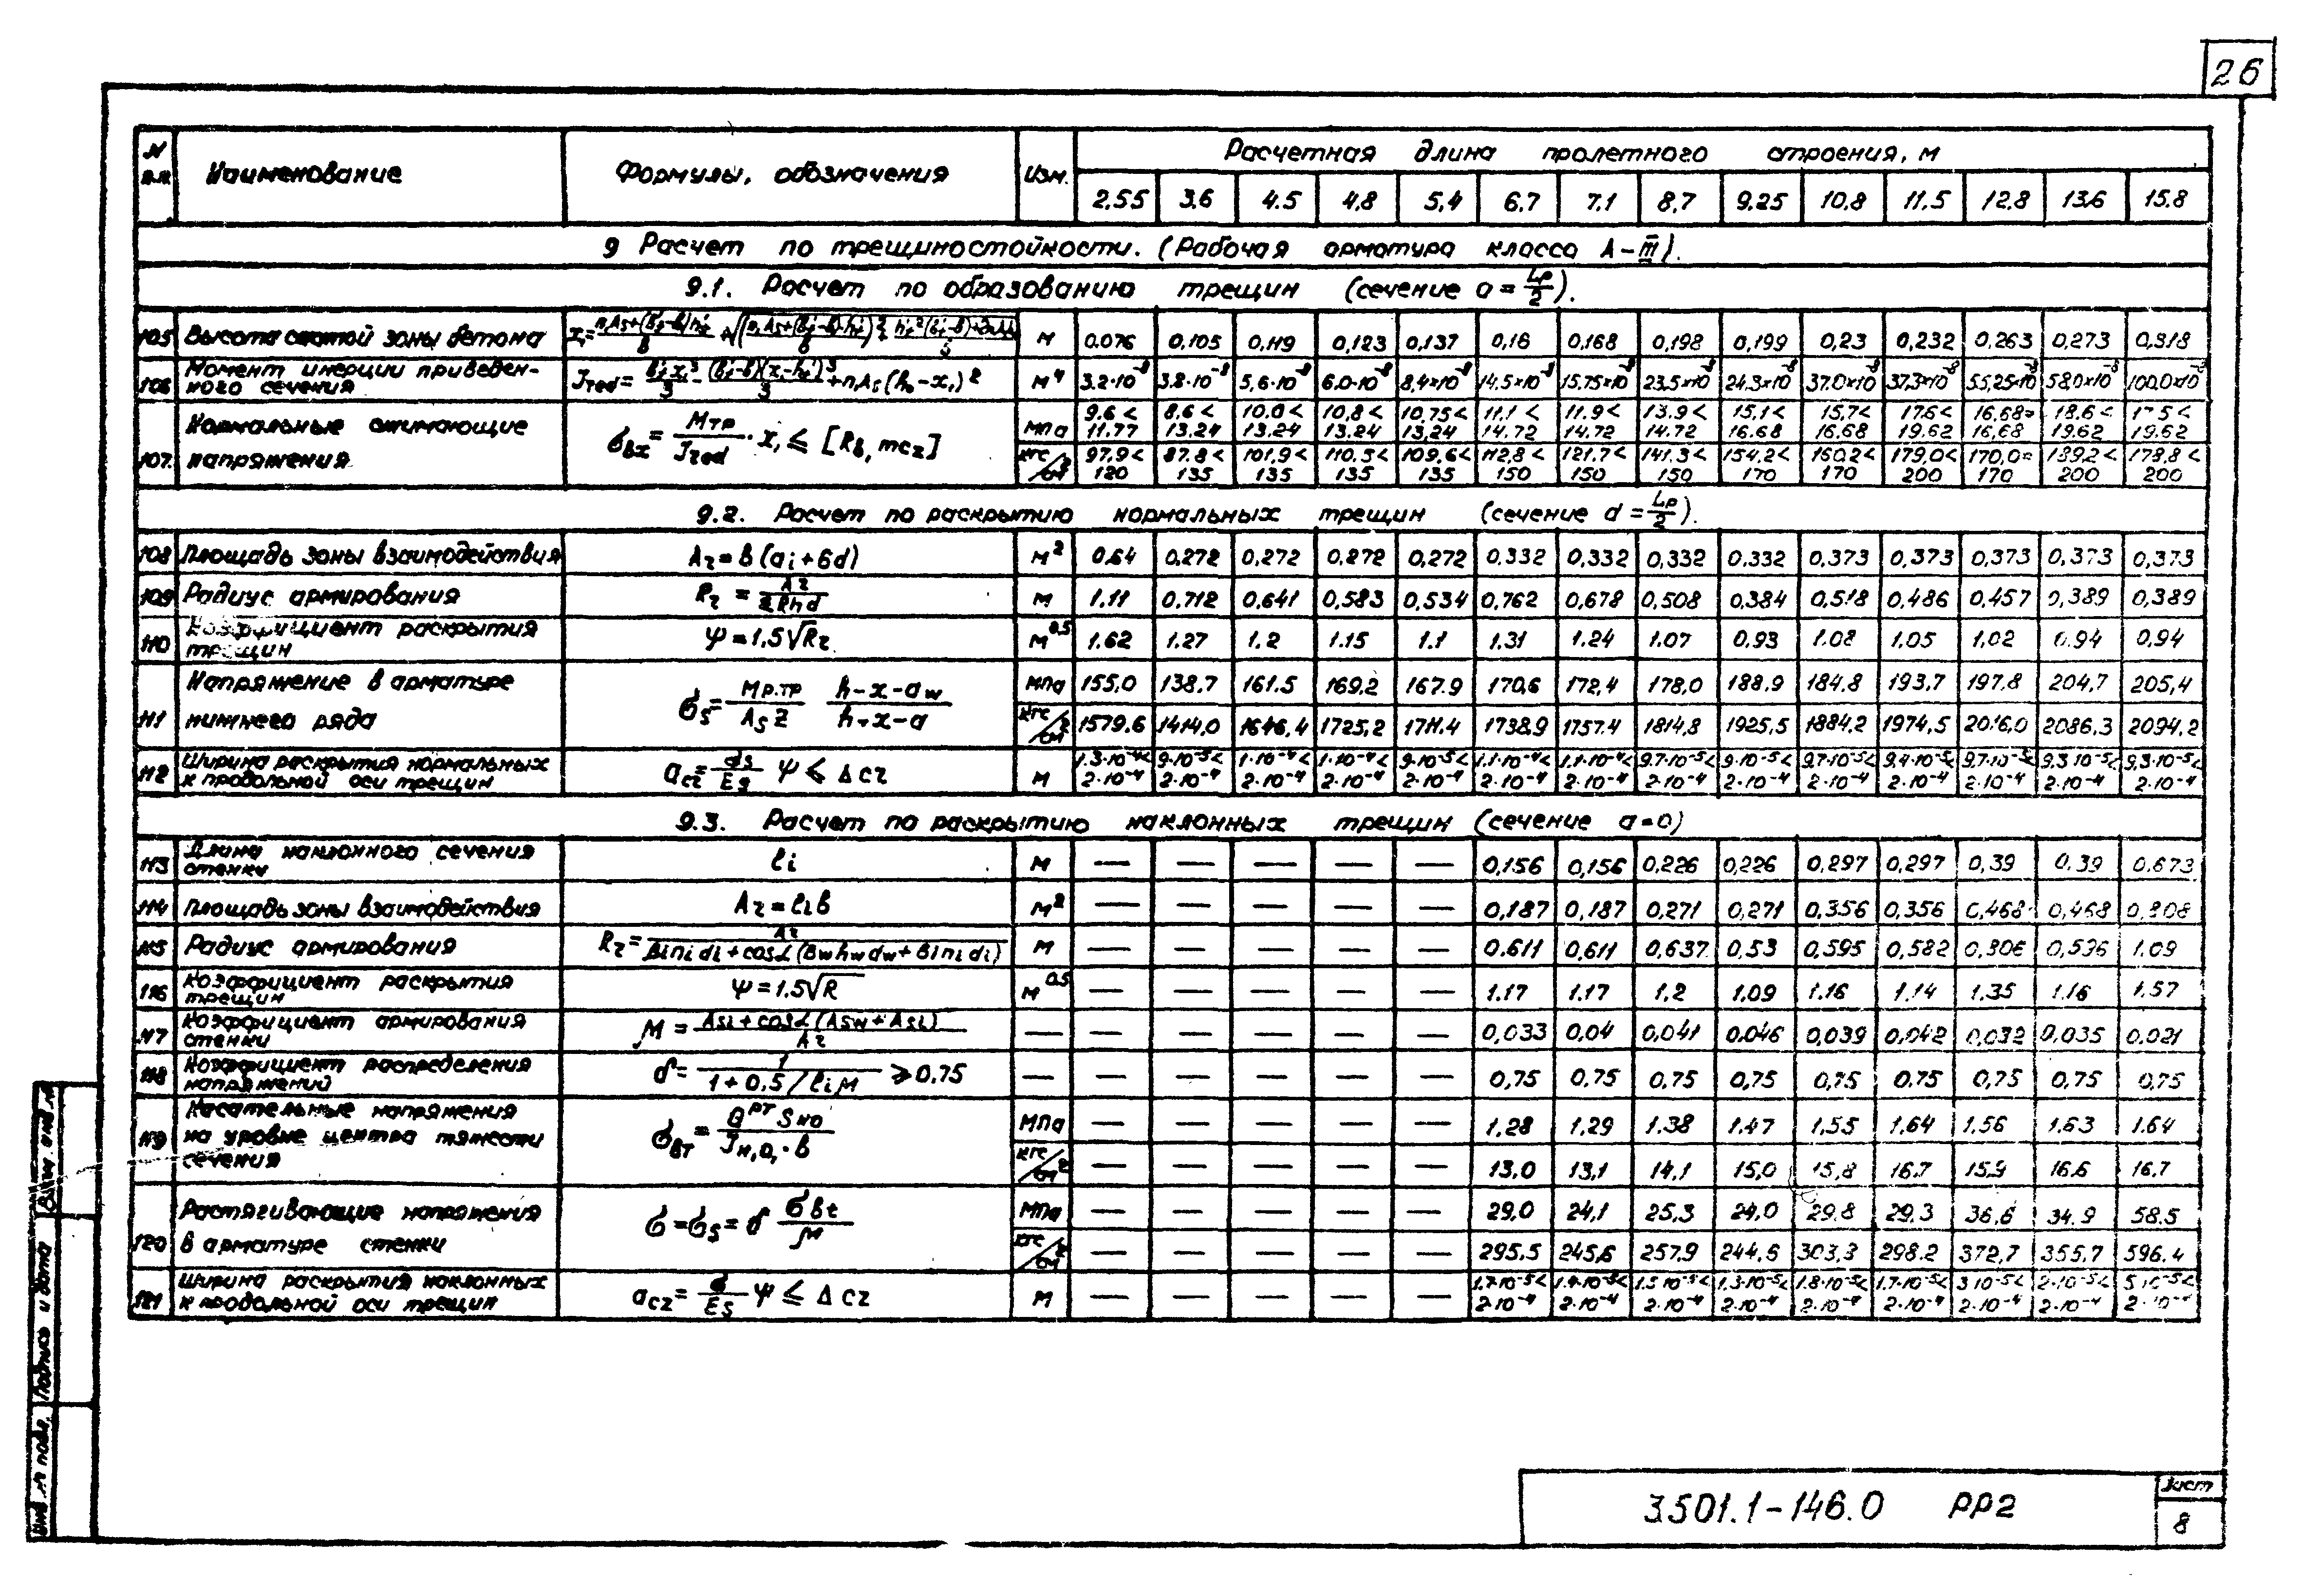 26
N п.п Наименование Формулы, обозначения Изм. Расчетная длина пролетного строения, м
2,55 3,6 4.5 4,8 5,4 6.7 7,1 8,7 9,25 10,8 11,5 12,8 13,6 15.8
9 Расчет по трещиностойкости. (Рабочая арматура класса А-III).
9.1. Расчет по образованию трещин (сечение a = Lp/2).
105 Высота сжатой зоны бетона м 0.076 0,105 0,119 0,123 0,137 0,16 0,168 0,198 0,199 0,23 0,232 0,263 0,273 0,318
106 Момент инерции приведенного сечения м⁴ 3.2·10⁻⁸ 3.8·10⁻⁸ 5,6·10⁻⁸ 6.0·10⁻⁸ 8,4×10⁻⁸ 14.5×10⁻⁸ 15.75×10⁻⁸ 23.5×10⁻⁸ 24.3×10⁻⁸ 37.0×10⁻⁸ 37.3×10⁻⁸ 55,25×10⁻⁸ 58.0×10⁻⁸ 100.0×10⁻⁸
107. Нормальные сжимающие напряжения σbx = Mтр/Jred · x, ≤ [Rb, mc2]
МПа 9.6< 8,6< 10.0< 10,8< 10,75< 11.1< 11.9< 13.9< 15,1< 15,7< 17.6< 16,68= 18.6< 17.5<
11.77 13.24 13.24 13.24 13,24 14.72 14.72 14.72 16.68 16,68 19.62 16,68 19.62 19.62
кгс/см² 97,9< 87.8< 101,9< 110.5< 109,6< 112,8< 121.7< 141.3< 154.2< 160.2< 179,0< 170,0= 189.2< 178,8<
120 135 135 135 135 150 150 150 170 170 200 170 200 200
9.2. Расчет по раскрытию нормальных трещин (сечение d = Lp/2).
108 Площадь зоны взаимодействия Ar = b (ai + 6d) м² 0,64 0,272 0,272 0,272 0,272 0,332 0,332 0,332 0,332 0,373 0,373 0,373 0,373 0,373
109 Радиус армирования м 1.11 0,712 0,641 0,583 0,534 0,762 0,678 0,508 0,384 0,518 0,486 0,457 0,389 0,389
110 Коэффициент раскрытия трещин Ψ = 1,5√Rr м⁰·⁵ 1.62 1.27 1.2 1.15 1.1 1.31 1.24 1.07 0.93 1.08 1.05 1,02 0.94 0,94
111 Напряжение в арматуре нижнего ряда σs = Mр.тр/As z h-x-aw/h-x-a
МПа 155,0 138.7 161.5 169,2 167.9 170,6 172,4 178,0 188,9 184.8 193,7 197.8 204,7 205,4
кгс/см² 1579.6 1414,0 1646,4 1725,2 1711.4 1738,9 1757.4 1814,8 1925,5 1884.2 1974,5 2016,0 2086,3 2094,2
112 Ширина раскрытия нормальных к продольной оси трещин acr = σs/Es Ψ ≤ Δcr м
1.3·10⁻⁴< 9·10⁻⁵< 1·10⁻⁴< 1·10⁻⁴< 9·10⁻⁵< 1.1·10⁻⁴< 1.1·10⁻⁴< 9.7·10⁻⁵< 9·10⁻⁵< 9.7·10⁻⁵< 9,4·10⁻⁵< 9,7·10⁻⁵< 9.3·10⁻⁵< 9,3·10⁻⁵<
2·10⁻⁴ 2·10⁻⁴ 2·10⁻⁴ 2·10⁻⁴ 2·10⁻⁴ 2·10⁻⁴ 2·10⁻⁴ 2·10⁻⁴ 2·10⁻⁴ 2·10⁻⁴ 2·10⁻⁴ 2·10⁻⁴ 2·10⁻⁴ 2·10⁻⁴
9.3. Расчет по раскрытию наклонных трещин (сечение a=0)
113 Длина наклонного сечения стенки li м — — — — — 0,156 0,156 0,226 0,226 0,297 0,297 0,39 0.39 0.673
114 Площадь зоны взаимодействия Ar = lib м² — — — — — 0,187 0,187 0,271 0,271 0,356 0,356 0,468 0,468 0,808
115 Радиус армирования м — — — — — 0.611 0,611 0,637 0,53 0,595 0,582 0,806 0,596 1.09
116 Коэффициент раскрытия трещин Ψ = 1.5√R м⁰·⁵ — — — — — 1.17 1.17 1.2 1.09 1.16 1.14 1.35 1.16 1,57
117 Коэффициент армирования стенки — — — — — — 0,033 0,04 0,041 0.046 0,039 0,042 0,032 0,035 0.021
118 Коэффициент распределения напряжений δ = 1/1+0.5/liμ ≥ 0,75 — — — — — — 0,75 0.75 0,75 0,75 0,75 0.75 0,75 0,75 0,75
119 Касательные напряжения на уровне центра тяжести сечения
МПа — — — — — 1,28 1,29 1.38 1.47 1,55 1,64 1.56 1.63 1.64
кгс/см² — — — — — 13,0 13,1 14,1 15,0 15,8 16.7 15,9 16,6 16.7
120 Растягивающие напряжения в арматуре стенки σ = σs = δ σbt/μ
МПа — — — — — 29,0 24,1 25,3 24,0 29.8 29.3 36,6 34.9 58.5
кгс/см² — — — — — 295.5 245,6 257.9 244,6 303,3 298.2 372,7 355.7 596.4
121 Ширина раскрытия наклонных к продольной оси трещин acr = σ/Es Ψ ≤ Δcr м — — — — —
1.7·10⁻⁵< 1.4·10⁻⁵< 1.5·10⁻⁵< 1,3·10⁻⁵< 1.8·10⁻⁵< 1.7·10⁻⁵< 3·10⁻⁵< 2·10⁻⁵< 5·10⁻⁵<
2·10⁻⁴ 2·10⁻⁴ 2·10⁻⁴ 2·10⁻⁴ 2·10⁻⁴ 2·10⁻⁴ 2·10⁻⁴ 2·10⁻⁴ 2·10⁻⁴
Инв. № подл. Подпись и дата Взам. инв. №
3.501.1-146.0 РР2
Лист
8